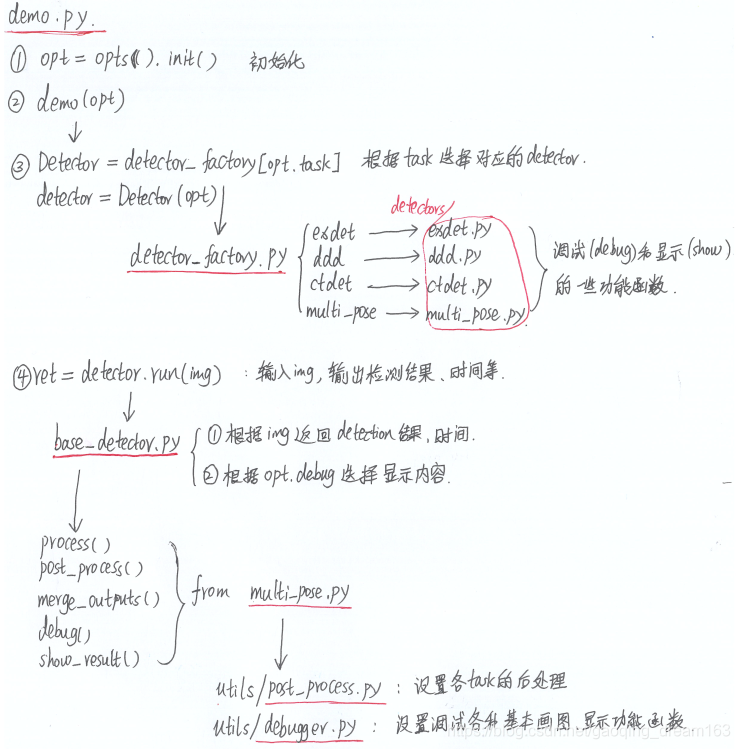 demo.py.
① opt = opts().init() 初始化
② demo(opt)
③ Detector = detector_factory[opt.task] 根据task选择对应的detector.
detector = Detector(opt)
detectors
detector_factory.py
exdet → exdet.py
ddd → ddd.py
ctdet → ctdet.py
multi_pose → multi_pose.py
调试(debug)和显示(show)
的一些功能函数.
④ ret = detector.run(img) : 输入img, 输出检测结果、时间等.
base_detector.py
① 根据img返回detection结果,时间.
② 根据opt.debug选择显示内容.
process()
post_process()
merge_outputs()
debug()
show_result()
from multi_pose.py
utils/post_process.py : 设置各task的后处理
utils/debugger.py : 设置调试各种基本画图、显示功能函数
https://blog.csdn.net/gaoqing_dream163